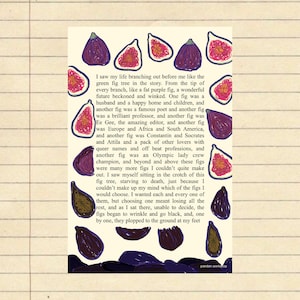 I saw my life branching out before me like the
green fig tree in the story. From the tip of
every branch, like a fat purple fig, a wonderful
future beckoned and winked. One fig was a
husband and a happy home and children, and
another fig was a famous poet and another fig
was a brilliant professor, and another fig was
Ee Gee, the amazing editor, and another fig
was Europe and Africa and South America,
and another fig was Constantin and Socrates
and Attila and a pack of other lovers with
queer names and off beat professions, and
another fig was an Olympic lady crew
champion, and beyond and above these figs
were many more figs I couldn't quite make
out. I saw myself sitting in the crotch of this
fig tree, starving to death, just because I
couldn't make up my mind which of the figs I
would choose. I wanted each and every one of
them, but choosing one meant losing all the
rest, and as I sat there, unable to decide, the
figs began to wrinkle and go black, and, one
by one, they plopped to the ground at my feet